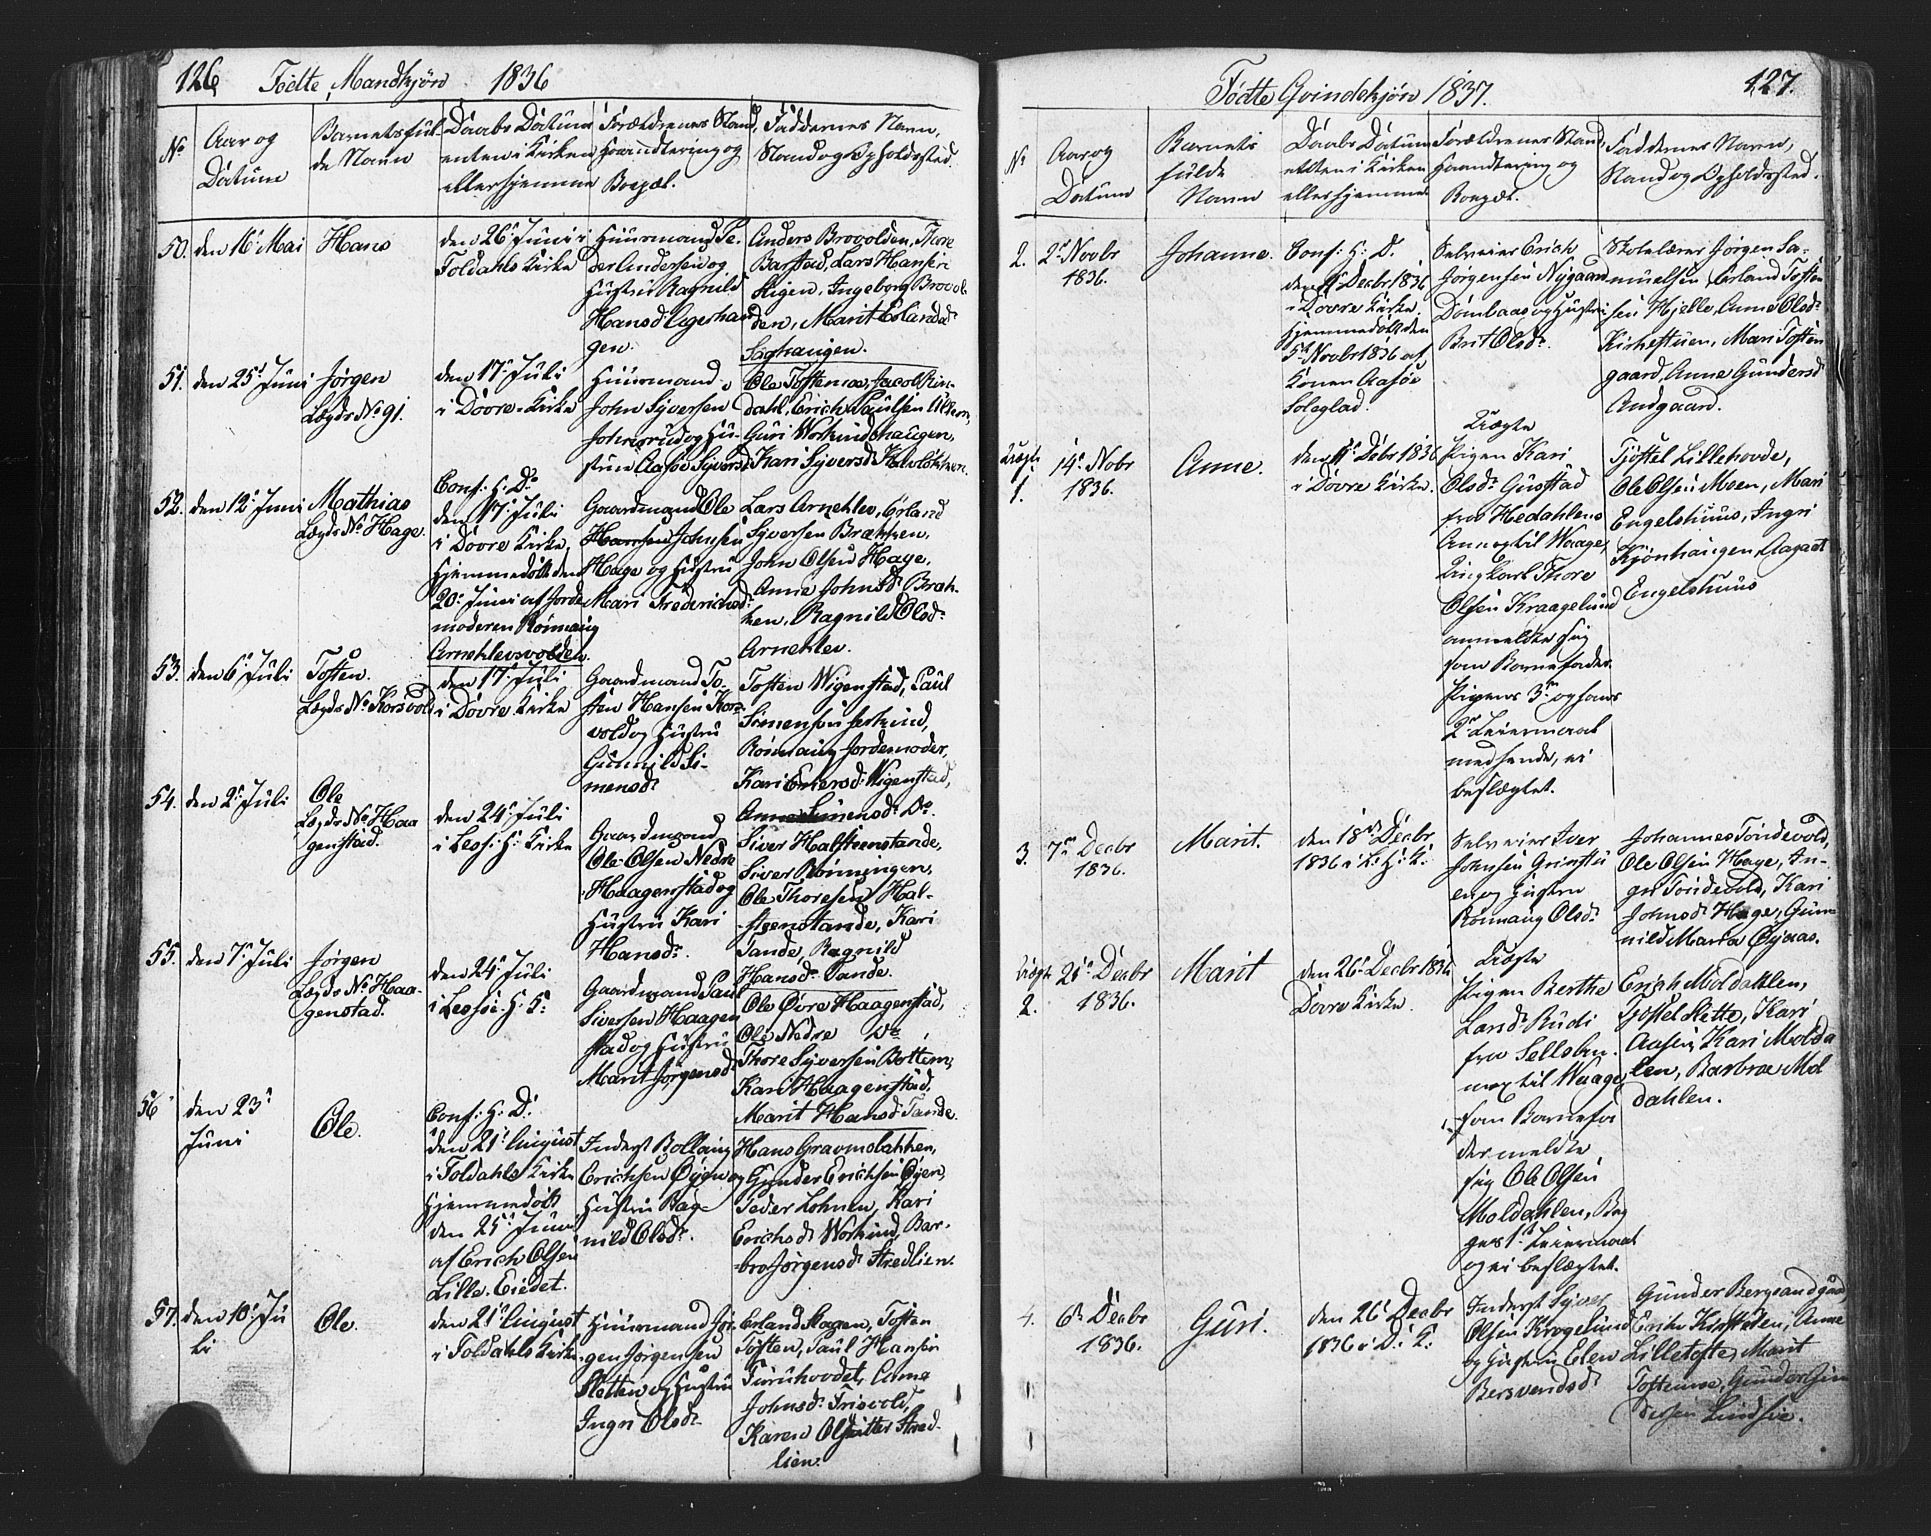 126 Födte, Mandkjön 1836
No
Aar og
Datum
Barnets ful-
de Navn
Daabs Datum
enten i Kirken
eller hjemme
Forældrenes Stand,
Haandtering og
Bopæl.
Faddernes Navn,
Stand og Opholdssted.
50. den 16de Mai
Hans
den 26de Juni i
Foldahls Kirke
Huusmand Pe-
der Andersen og
Hustru Ragnild
Hansdr
gen.
Anders Brovolden, Thore
Barstad, Lars Hansen
Stigen, Ingeborg Brovol-
den, Marit Erlandsdr
Saghaugen.
51. den 25de Juni
Jörgen
Lægds No 91.
den 17de Juli
i Dovre Kirke
Huusmand
John Syversen
og Hu-
strue Aasöe Syversdr
Ole Toftemoe, Jacob Lin-
dahl, Erich Paulsen
Guri Workindshaugen,
Kari Syversdr
52. den 12te Juni
Mathias
Lægds No Hage.
Conf: H: D:
den 17de Juli
i Dovre Kirke,
Hjemmedöbt den
20de Juni af Jorde-
moderen Rönnaug
Arnehlevsvolden.
Gaardmand Ole
Hansen Johnsen
Hage og Hustru
Mari Frederichsdr
Lars Arnehlev, Erland
Syversen Brækken,
John Olsen Hage,
Anne Johnsdr Bræk-
ken, Ragnild Olsdr
Arnehlev.
53. den 6te Juli
Tosten.
Lægds No Korsvold
den 17de Juli
i Dovre Kirke
Gaardmand To-
sten Hansen Kors-
vold og Hustru
Gunnild Si-
mensdr
Tosten Wigenstad, Paul
Simensen
Rönnaug Jordemoder,
Kari Einersdr Wigenstad,
Anne Simensdr Do
54. den 2den Juli
Ole
Lægds No Haa-
genstad.
den 24de Juli
i Lesj: H: Kirke
Gaardmand
Ole Olsen Nedre
Haagenstad og
Hustru Kari
Hansdr.
Siver Halstenstande,
Siver Rönningen,
Ole Thoresen Hal-
stenstande, Kari
Tande, Ragnild
Hansdr Tande.
55. den 7de Juli
Jörgen
Lægds No Haa-
genstad.
den 24de Juli
i Lesjöe H: K:
Gaardmand Paul
Siversen Haagen-
stad og Hustru
Marit Jörgensdr
Ole Övre Haagenstad,
Ole Nedre Do
Thore Syversen Bottem,
Kari Haagenstad,
Marit Hansdr Tande.
56 den 23de
Juni
Ole.
Conf: H: D:
den 21de August
i Foldahls Kirke
Hjemmedöbt
den 25de Juni
af Erich Olsen
Lille-Eiedet.
Inderst Rollaug
Erichsen Öyen og
Hustru Rag-
nild Olsdr.
Hans Gravmolakken,
Gunder Erichsen Öyen,
Peder Lohnen, Kari
Erichsdr Workind, Bar-
bro Jörgensdr Stredlien.
57. den 10de Ju-
li
Ole.
den 21de August
i Foldahls Kirke
Huusmand Jör-
gen Jörgensen
Sletten og Hustru
Ingri Olsdr
Erland Slagen, Tosten
Toften, Paul Hansen
Furuhovdet, Anne
Johnsdr Frisvold,
Karen Olsdatter Stred-
lien.
Födte Qvindekjön 1837. 127.
No
Aar og
Datum
Barnets
fulde
Navn
Daabs Datum
enten i Kirken
eller hjemme
Forældrenes Stand,
Haandtering og
Bopæl.
Faddernes Navn,
Stand og Opholdssted.
2. 2den Novbr
1836.
Johanne.
Conf: H: D:
den 11te Decbr 1836
i Dovre Kirke.
Hjemmedöbt den
5te Novbr 1836 af
Konen Aasöe
Soleglad.
Selveier Erich
Jörgensen Nygaard
Dombaas og Hustru
Brit Olsdr.
Skolelærer Jörgen Sa-
muelsen, Erland Tosten-
sen Hjelle, Anne Olsdr
Kirkestuen, Mari Toften-
gaard, Anne Gundersdr
Andgaard.
Uægte
1.
14de Nobr
1836.
Anne.
den 11te Debr 1836
i Dovre Kirke.
Uægte
Pigen Kari
Olsdr Gusstad
fra Hedahlens
Annex til Waage,
Ungkarl Thore
Olsen Kraagelund
anmeldte sig
som Barnefader
Pigens 3die og hans
2det Leiermaal
med hende, ei
beslægtet.
Tjostel Lillehovde,
Ole Olsen Moen, Mari
Engelshuus, Ingri
Kjönhaugen, Aagaat
Engelshuus
3. 7de Decbr
1836.
Marit.
den 18de Decbr
1836 i L: H: K:
Selveier Iver
Johnsen Grinstu-
en og Hustru
Rönnaug Olsdr
Johannes Tondevold,
Ole Olsen Hage, In-
gri Tondevold, Kari
Johnsdr Hage, Gun-
nild Maria
Uægte
2.
21de Decbr
1836.
Marit
den 26de Decbr 1836
Dovre Kirke.
Uægte
Pigen Berthe
Larsdr Rudi
fra Sells An-
nex til Waage,
som Barnefa-
der meldte
sig Ole Olsen
Moldahlen, Beg-
ges 1ste Leiermaal
og ei beslægtet.
Erich Moldahlen,
Tjostel Slette, Kari
Aasen, Kari Molda-
len, Barbroe Mol-
dahlen.
4. 6te Decbr
1836.
Guri.
den 26de Decbr
1836 i D: K:
Inderst Syver
Olsen Krogelund
og Hustru Elen
Bersvendsdr
Gunder Bergsandgaard
Erich Kirkestuen, Anne
Lilletofte, Marit
Toftemoe, Gunder
Lindsöe.